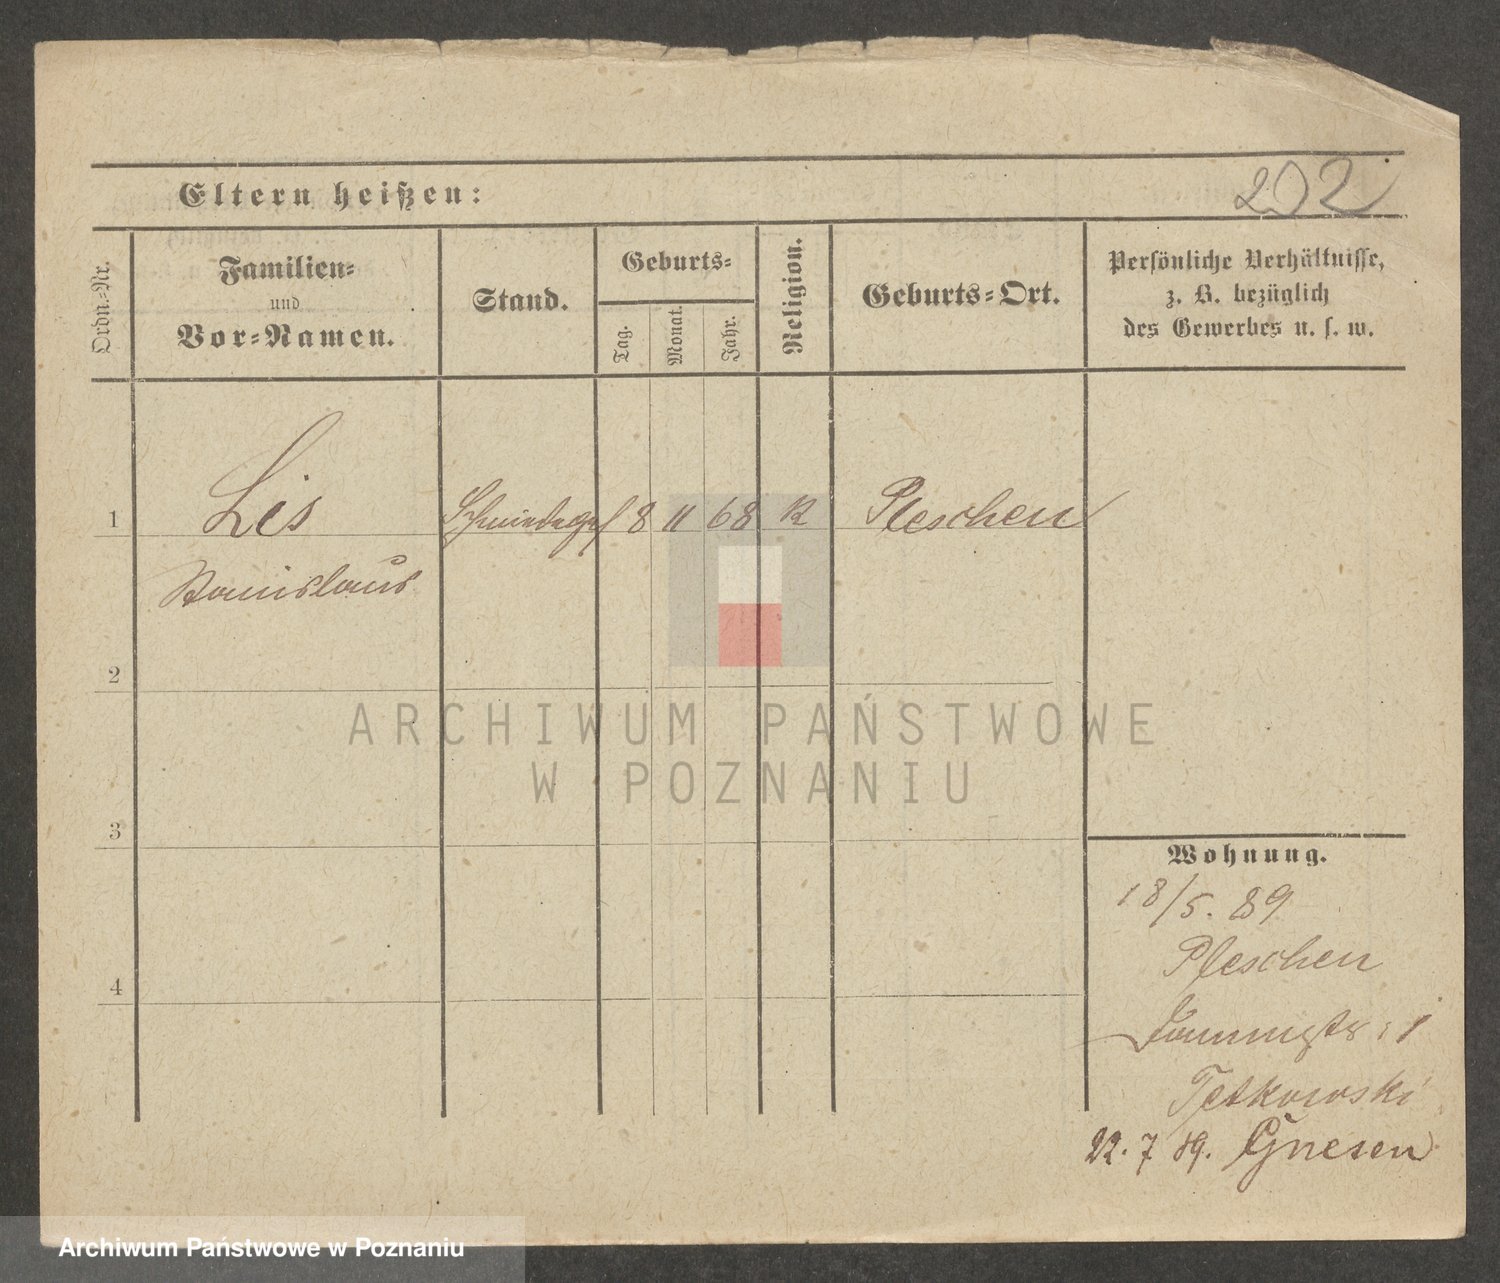 202
Eltern heißen:
Ordn.=Nr.
Familien=
und
Vor=Namen.
Stand.
Geburts=
Tag.
Monat.
Jahr.
Religion.
Geburts=Ort.
Persönliche Verhältnisse,
z. B. bezüglich
des Gewerbes u. s. w.
1 Lis Schmiedeges 8 11 68 K Pleschen
Stanislaus
2
ARCHIWUM PAŃSTWOWE
W POZNANIU
3
Wohnung.
18/5. 89
Pleschen
4
1
Tetkowski
22. 7 89. Gnesen
Archiwum Państwowe w Poznaniu